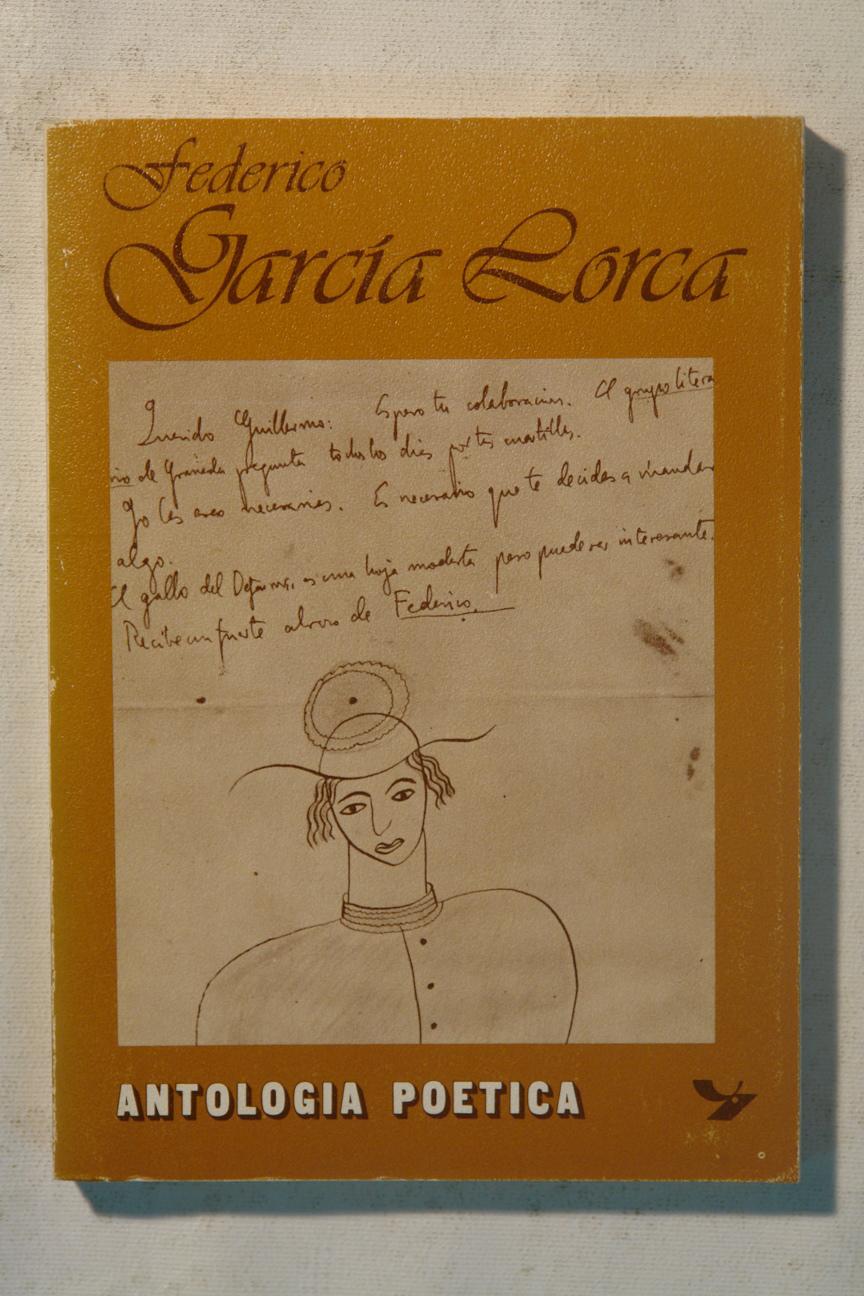 Federico
García Lorca
Querido Guillermo: Espero tu colaboracion. El grupo litera
rio de Granada pregunta todos los dias por tus cuartillas.
Yo las creo necesarias. Es necesario que te decidas a mandar
algo.
El gallo del Defensor, es una hoja modesta pero puede ser interesante.
Recibe un fuerte abrazo de Federico.
ANTOLOGIA POETICA